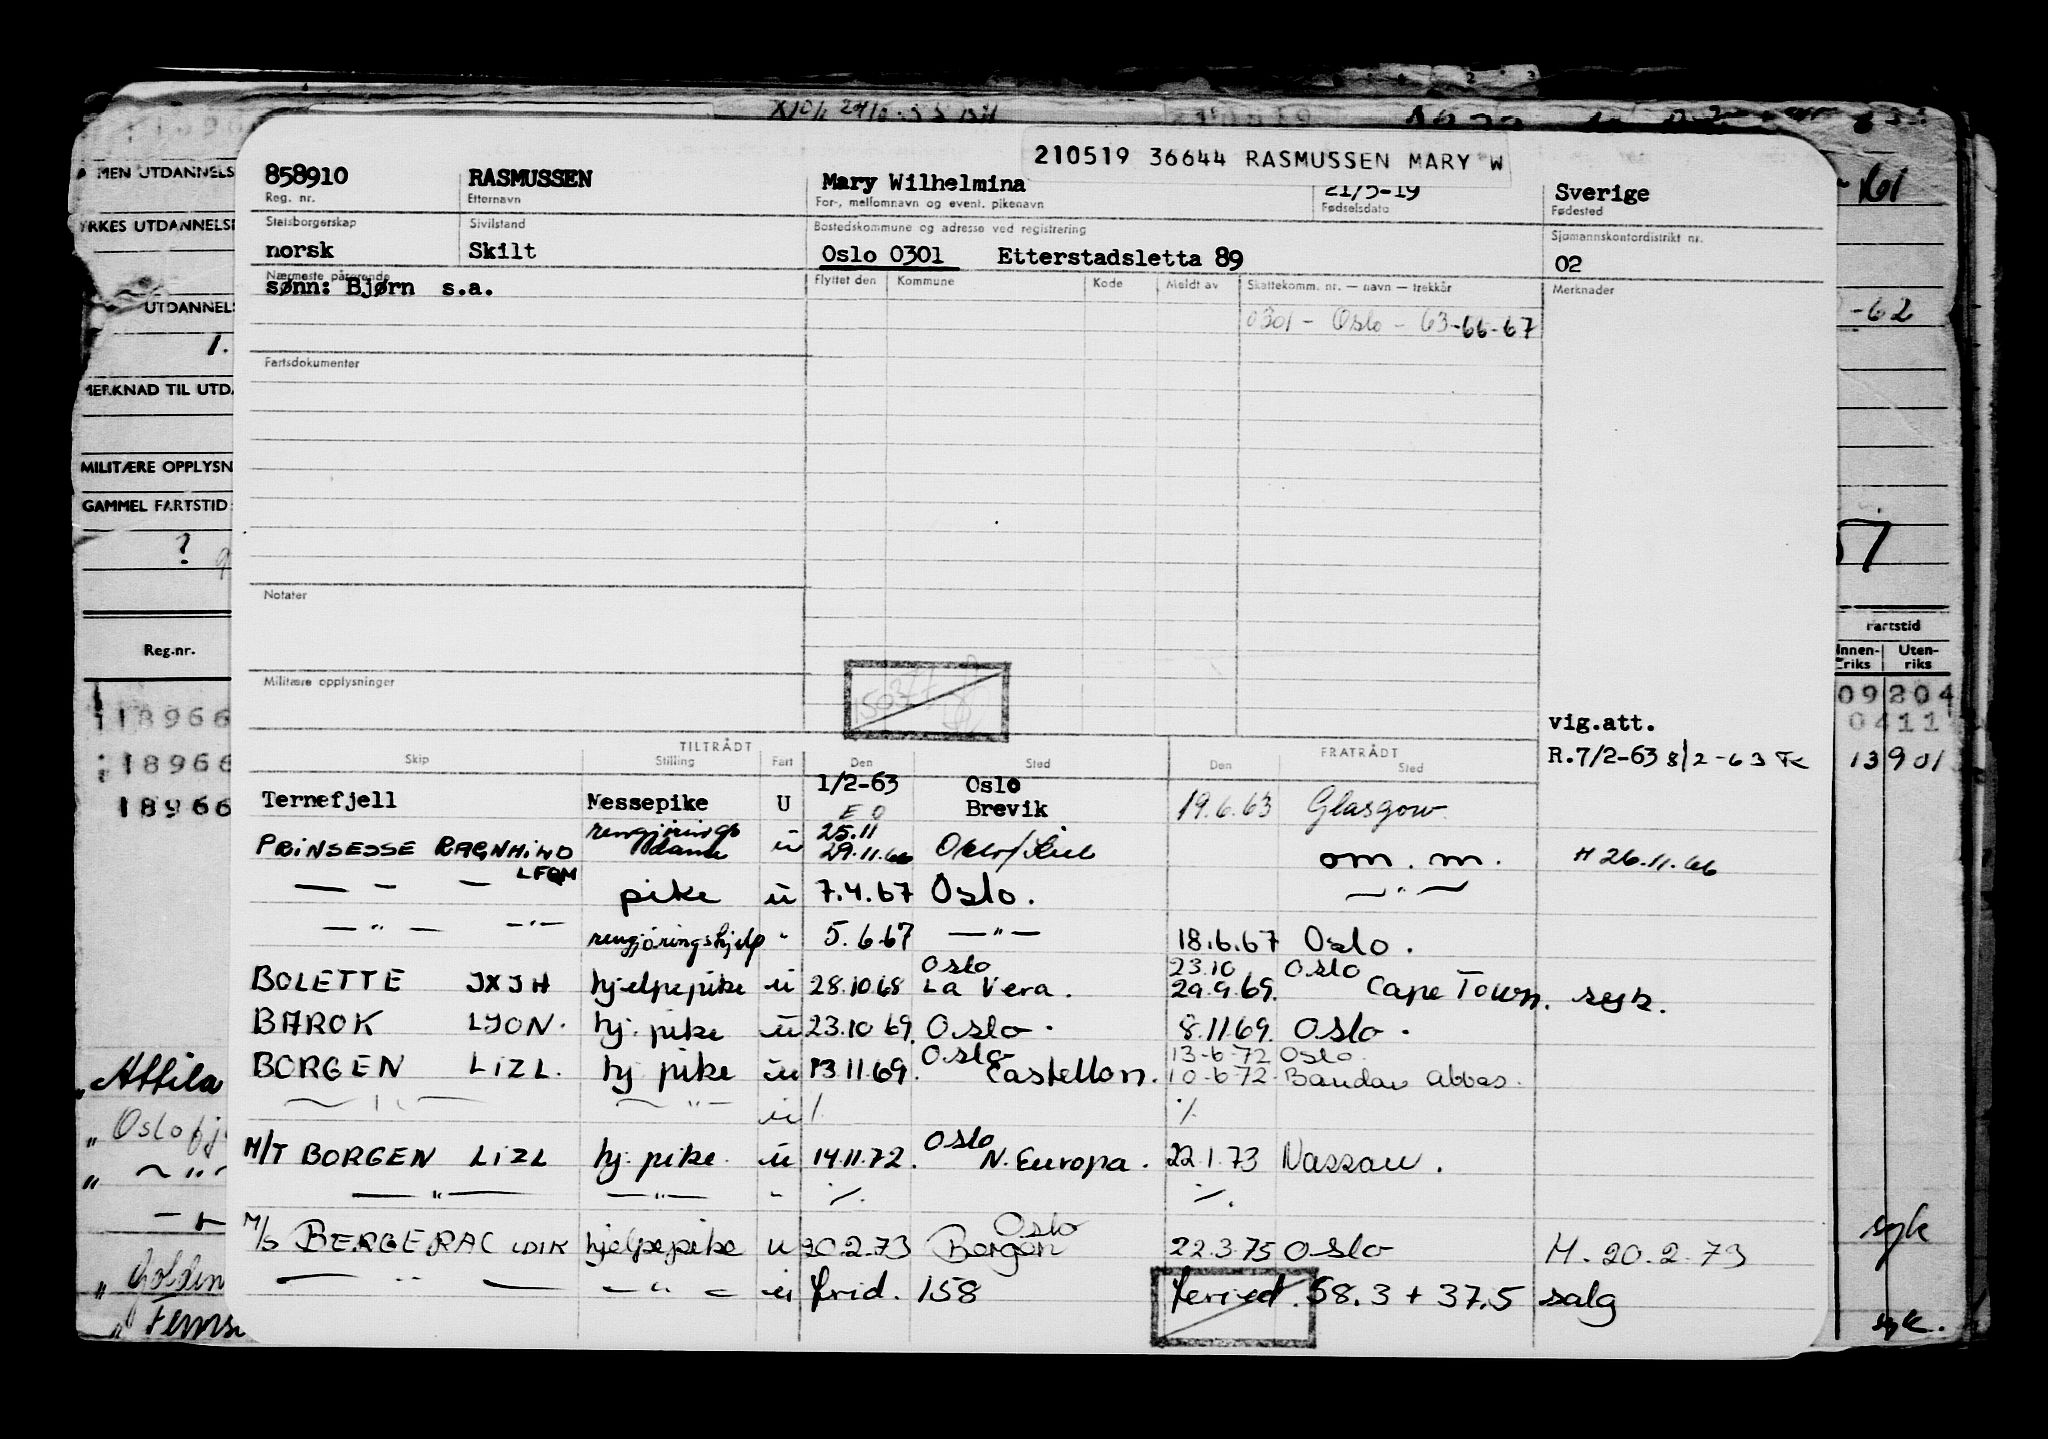 210519 36644 RASMUSSEN MARY W
858910 RASMUSSEN Mary Wilhelmina 21/5-19 Sverige
Reg. nr. Etternavn For-, mellomnavn og event. pikenavn Fødselsdato Fødested
Statsborgerskap Sivilstand Bostedskommune og adresse ved registrering Sjømannskontordistrikt nr.
norsk Skilt Oslo 0301 Etterstadsletta 89 02
Nærmeste pårørende Flyttet den Kommune Kode Meldt av Skattekomm. nr. — navn — trekkår Merknader
sønn: Bjørn s.a.
0301 - Oslo - 63-66-67
Fartsdokumenter
Notater
Militære opplysninger
vig.att.
R.7/2-63 8/2-63
TILTRÅDT FRATRÅDT
Skip Stilling Fart Den Sted Den Sted
1/2-63 Oslo
Ternefjell Messepike U Brevik 19.6.63 Glasgow
E O
rengjørings 25.11
PRINSESSE RAGNHILD dame ü 29.11.66 Oslo/Kiel om. m. H 26.11.66
LFQM
— - — pike ü 7.4.67 Oslo. — " —
— " — — " — rengjøringshjelp " 5.6.67 — " — 18.6.67 Oslo.
Oslo 23.10 Oslo
BOLETTE JXJH hjelpepike ü 28.10.68 La Vera. 29.9.69. Cape Town. syk.
BAROK LJON. hj. pike ü 23.10.69. Oslo. 8.11.69. Oslo.
Oslo 13-6-72 Oslo.
BORGEN LIZL. hj pike ü 13.11.69. Castellon. 10-6-72. Bandar abbas.
ü ·/. ·/.
Oslo
M/T BORGEN LIZL hj. pike. ü 14.11.72. N. Europa. 22.1.73 Nassau.
— " — — " — " ·/. ·/.
Oslo
M/S BERGERAC LDIK hjelpepike u 20.2.73 Bergen 22.3.75 Oslo H. 20.2.73
— " — — " — ü frid. 158 feried. 58.3 + 37.5 salg
MEN UTDANNELS
YRKES UTDANNELSE
UTDANNELS
1.
MERKNAD TIL UTDA
MILITÆRE OPPLYSN
GAMMEL FARTSTID:
?
Reg.nr.
18966
18966
18966
" Attila
" Oslofj
" — " —
" Golden
-62
Fartstid
Innen-
riks
Uten-
riks
09204
0411
13901
syk
syk.